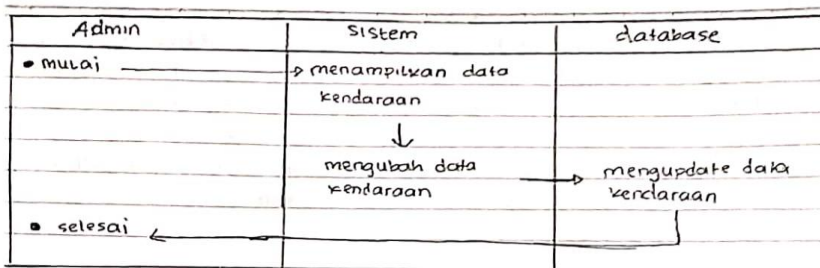 Admin
Sistem
database
mulai
menampilkan data
kendaraan
mengubah data
kendaraan
mengupdate data
kendaraan
selesai